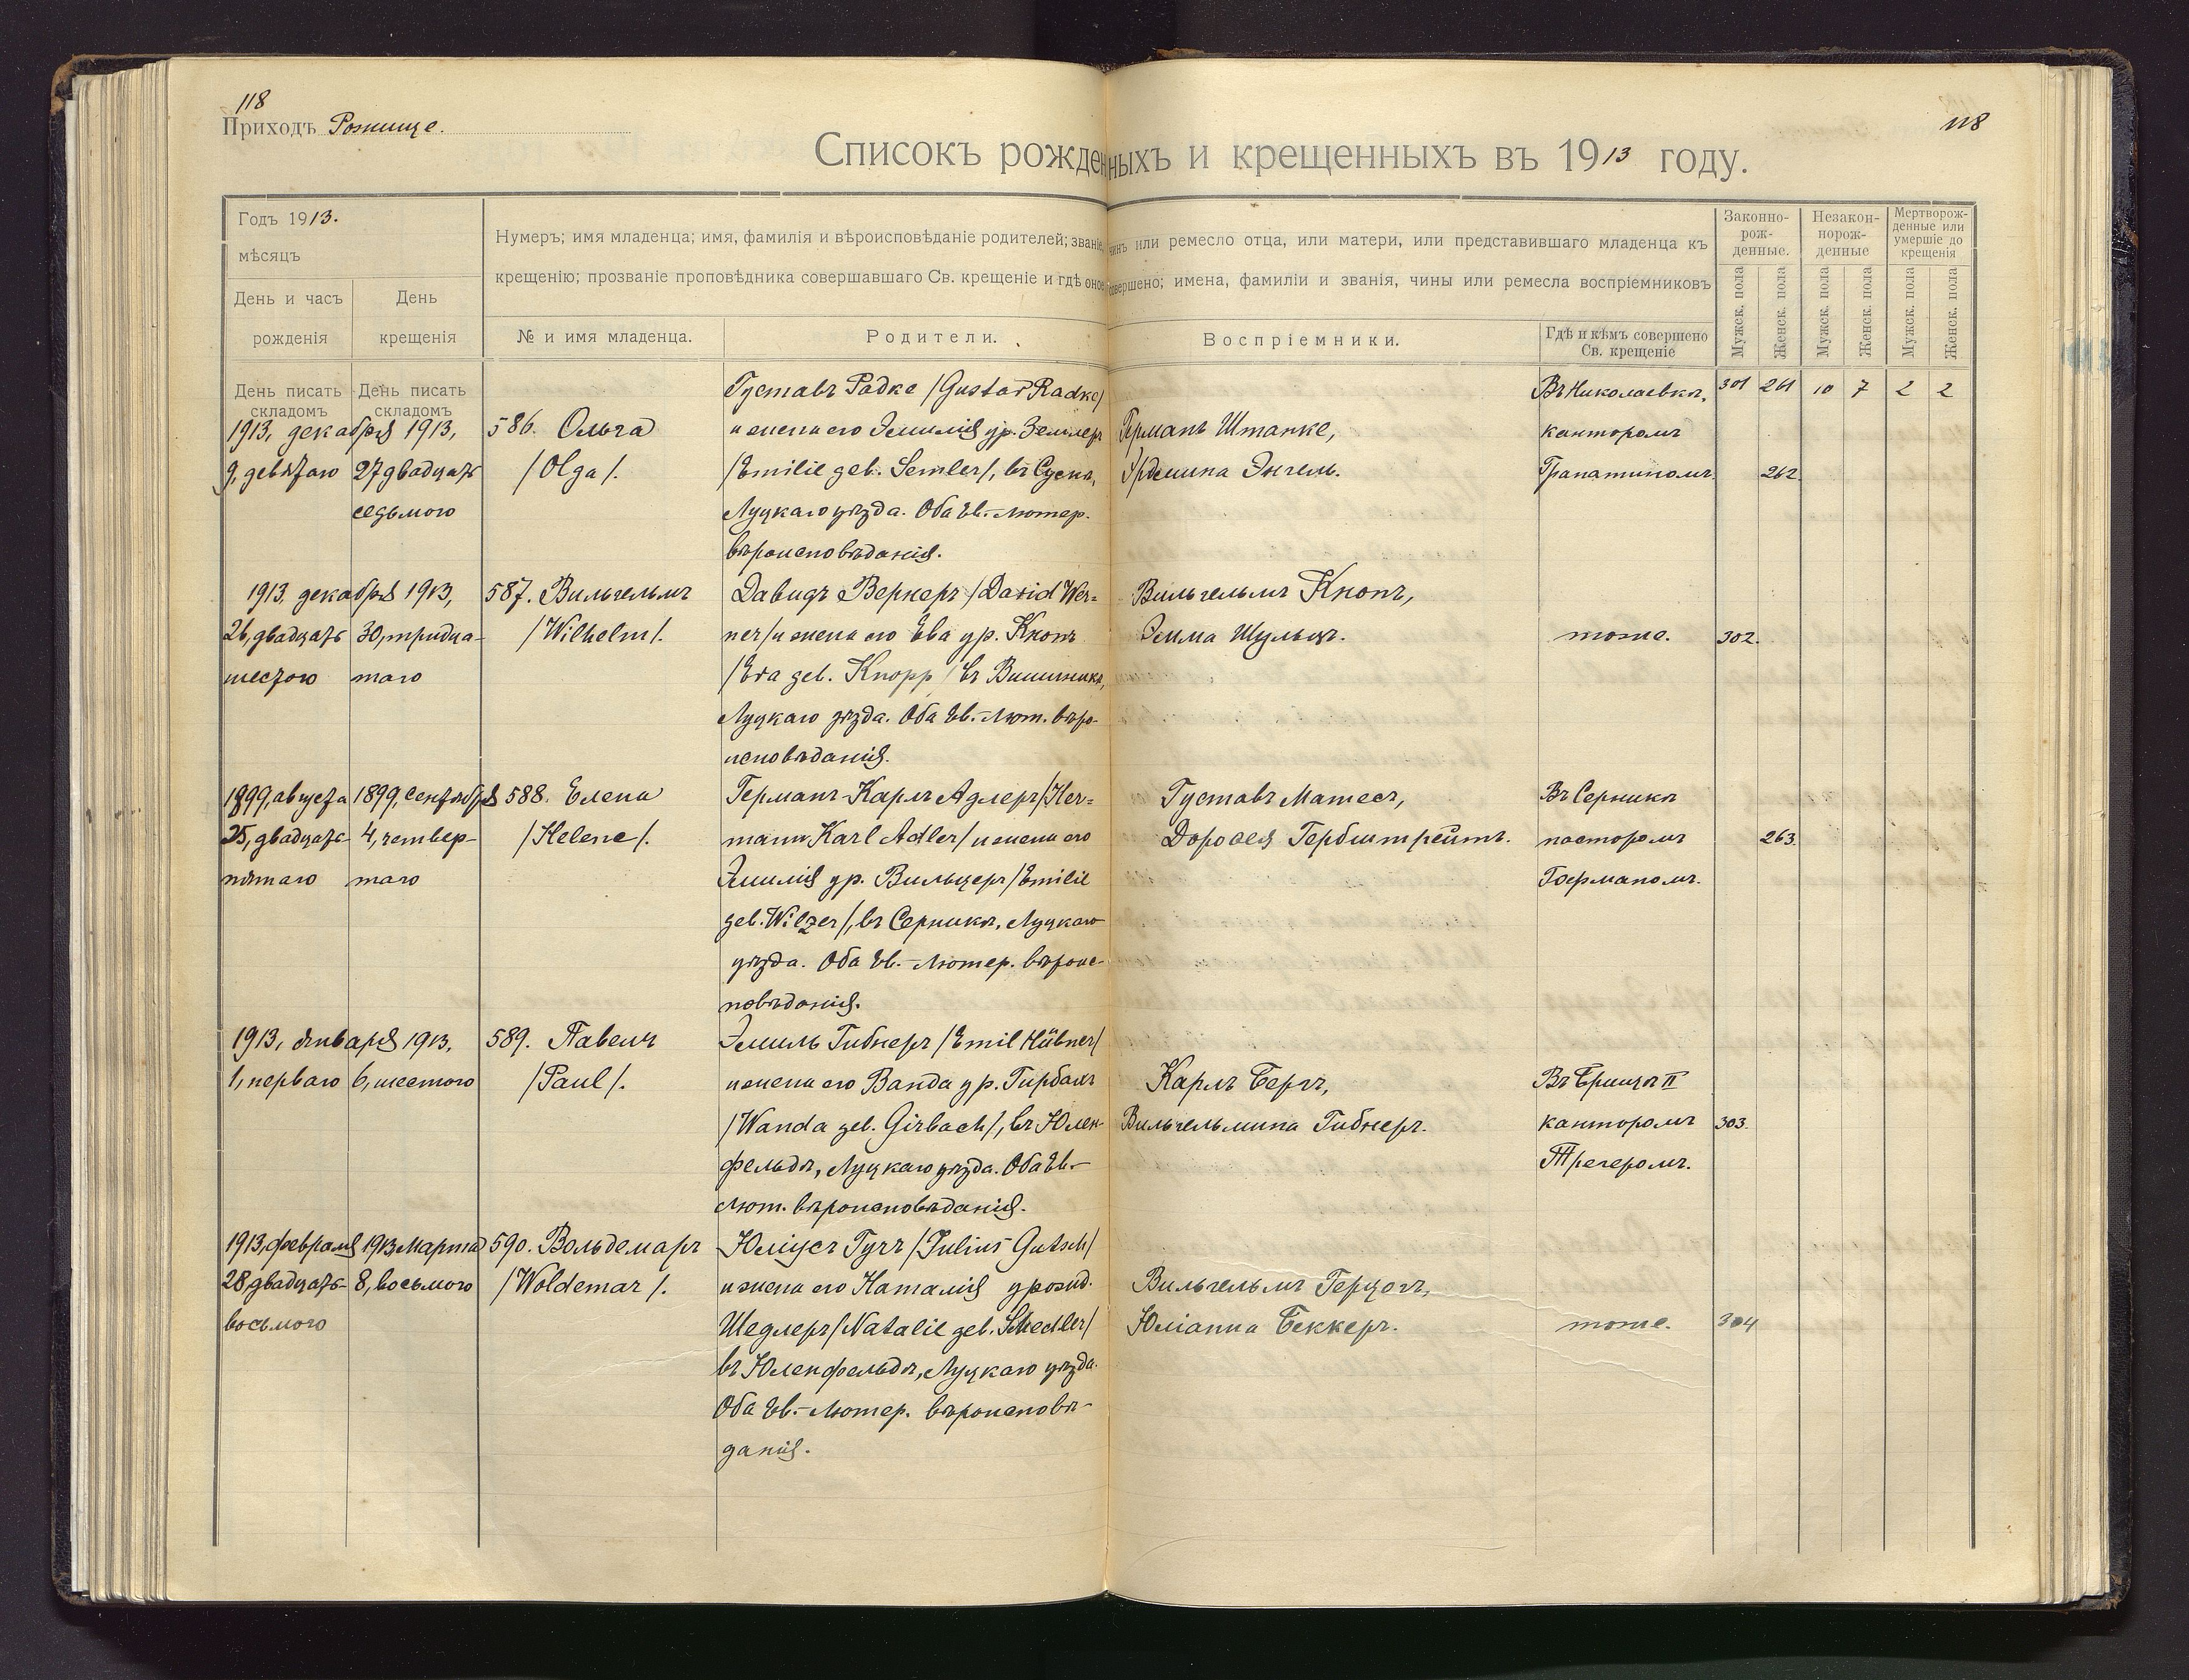 118
Приходъ Рожище.
118
Списокъ рожденныхъ и крещенныхъ въ 1913 году.
Годъ 1913.
мѣсяцъ
День и часъ рожденія
День крещенія
Нумеръ; имя младенца; имя, фамилія и вѣроисповѣданіе родителей; званіе, чинъ или ремесло отца, или матери, или представившаго младенца къ
крещенію; прозваніе проповѣдника совершавшаго Св. крещеніе и гдѣ оное совершено; имена, фамиліи и званія, чины или ремесла воспріемниковъ
№ и имя младенца.
Родители.
Воспріемники.
Гдѣ и кѣмъ совершено
Св. крещеніе
Законно-
рож-
денные.
Незакон-
порож-
денные
Мертворож-
денные или
умершіе до
крещенія
Мужск. пола
Женск. пола
Мужск. пола
Женск. пола
Мужск. пола
Женск. пола
День писать
складомъ
День писать
складомъ
1913, декабря 1913,
9, девятаго
27 двадцать
седьмого
586. Ольга
/Olga/.
Густавъ Радке /Gustav Radke/
и жена его Эмилія ур. Землеръ
/Emilie geb. Semler/, въ Сускѣ,
Луцкаго уѣзда. Оба Ев.-лютер.
вѣроисповѣданія.
Германъ Штанке,
Эрдмина Энгель.
Въ Николаевкѣ,
канторомъ
Гранатиномъ.
301 261 10 7 2 2
262.
1913. декабря 1913,
26, двадцать
шестого
30, тридца-
таго
587. Вильгельмъ
/Wilhelm/.
Давидъ Вернеръ /David Wer-
ner/ и жена его Ева ур. Кнопъ
/Eva geb. Knopp/ въ Вишенкѣ,
Луцкаго уѣзда. Оба Ев.-лют. вѣро-
исповѣданія.
Вильгельмъ Кнопъ,
Эмма Шульцъ.
тоже.
302.
1899, августа 1899, сентября
25, двадцать-
пятаго
4, четвер-
таго
588. Елена
/Helene/.
Германъ Карлъ Адлеръ /Her-
mann Karl Adler/ и жена его
Эмилія ур. Вильцеръ /Emilie
geb. Wilzer/, въ Серникѣ, Луцкаго
уѣзда. Оба Ев.-лютер. вѣроис-
повѣданія.
Густавъ Матесъ,
Доровея Гербштрейтъ.
Въ Серникѣ
пасторомъ
Гоерманомъ.
263.
1913, января 1913,
1, перваго
6, шестого
589. Павелъ
/Paul/.
Эмиль Гибнеръ /Emil Hübner/
и жена его Ванда ур. Гирбахъ
/Wanda geb. Girbach/, въ Юлен-
фельдѣ, Луцкаго уѣзда. Оба Ев.-
лют. вѣроисповѣданія.
Карлъ Бергъ,
Вильгельмина Гибнеръ.
Въ Брищѣ II
канторомъ
Трегеромъ.
303.
1913, февраля 1913 Марта
28, двадцать-
восьмого
8, восьмого
590. Вольдемаръ
/Woldemar/.
Юліусъ Гутъ /Julius Gutsch/
и жена его Наталія урожд.
Шедлеръ /Natalie geb. Schedler/
въ Юленфельдѣ, Луцкаго уѣзда.
Оба Ев.-лютер. вѣроисповѣ-
данія.
Вильгельмъ Герцогъ,
Юліанна Беккеръ.
тоже.
304